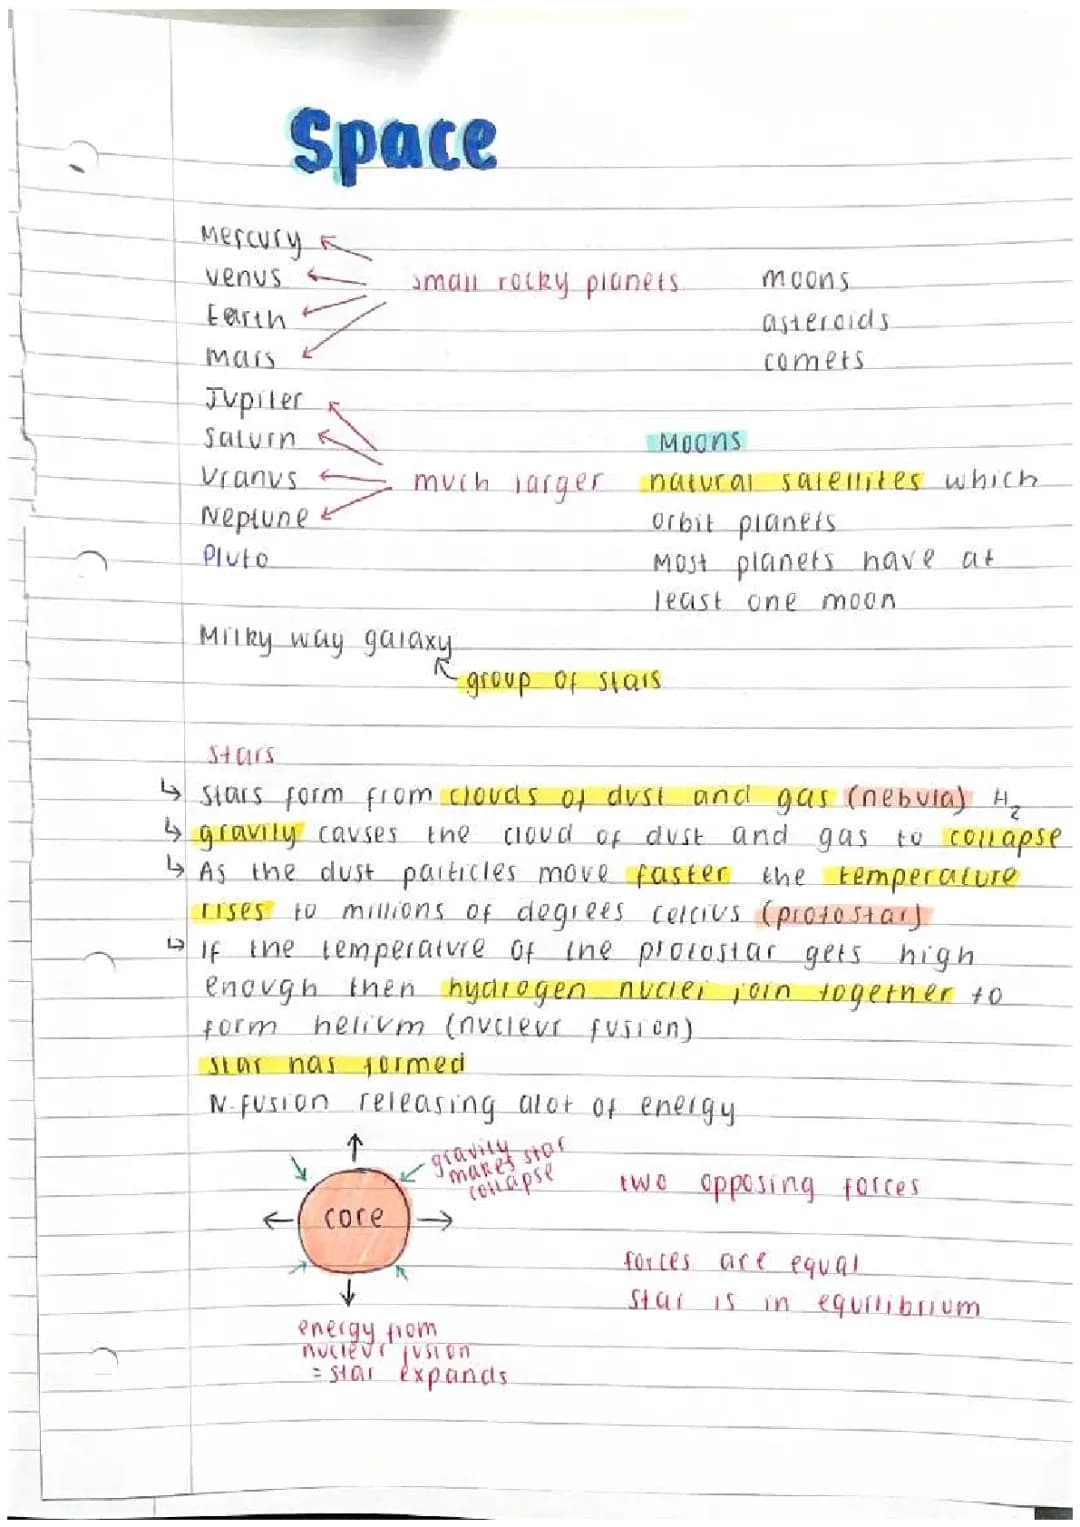 Space
Mercury
venus
Earth
mars
small rocky planets
moons
asteroids
comets
Jupiter
Saturn
Uranus
Neptune
Pluto
much larger
Moons
natural satellites which
orbit planets
Most planets have at
least one moon
Milky way galaxy
group of stars
Stars
↳ stars form from clouds of dust and gas (nebula) H₂
↳ gravity causes the cloud of dust and gas to collapse
↳ As the dust particles move faster the temperature
rises to millions of degrees celcius (protostar)
↳ If the temperature of the protostar gets high
enough then hydrogen nuclei join together to
form helium (nucleur fusion)
star has formed
N.fusion releasing alot of energy
gravity
makes star
collapse
core
two opposing forces
forces are equal
star is in equilibrium
energy from
nucleur fusion
= star expands